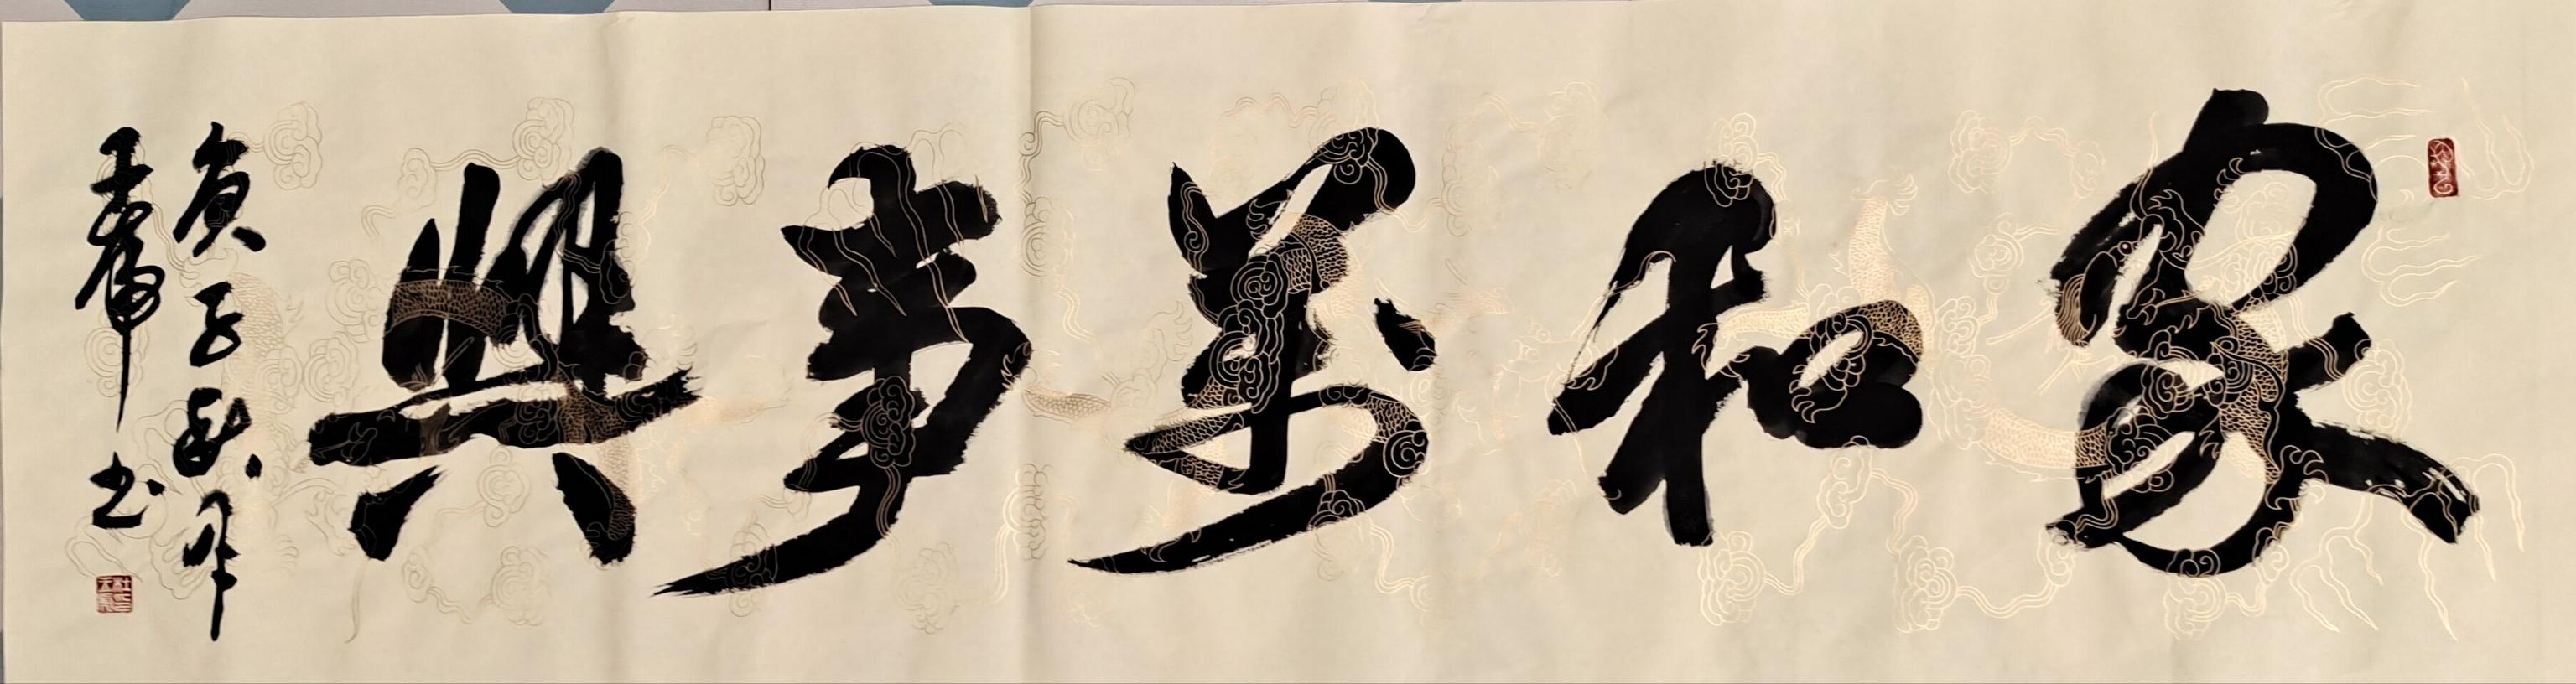 家和萬事興
庚子秋月
王犇书